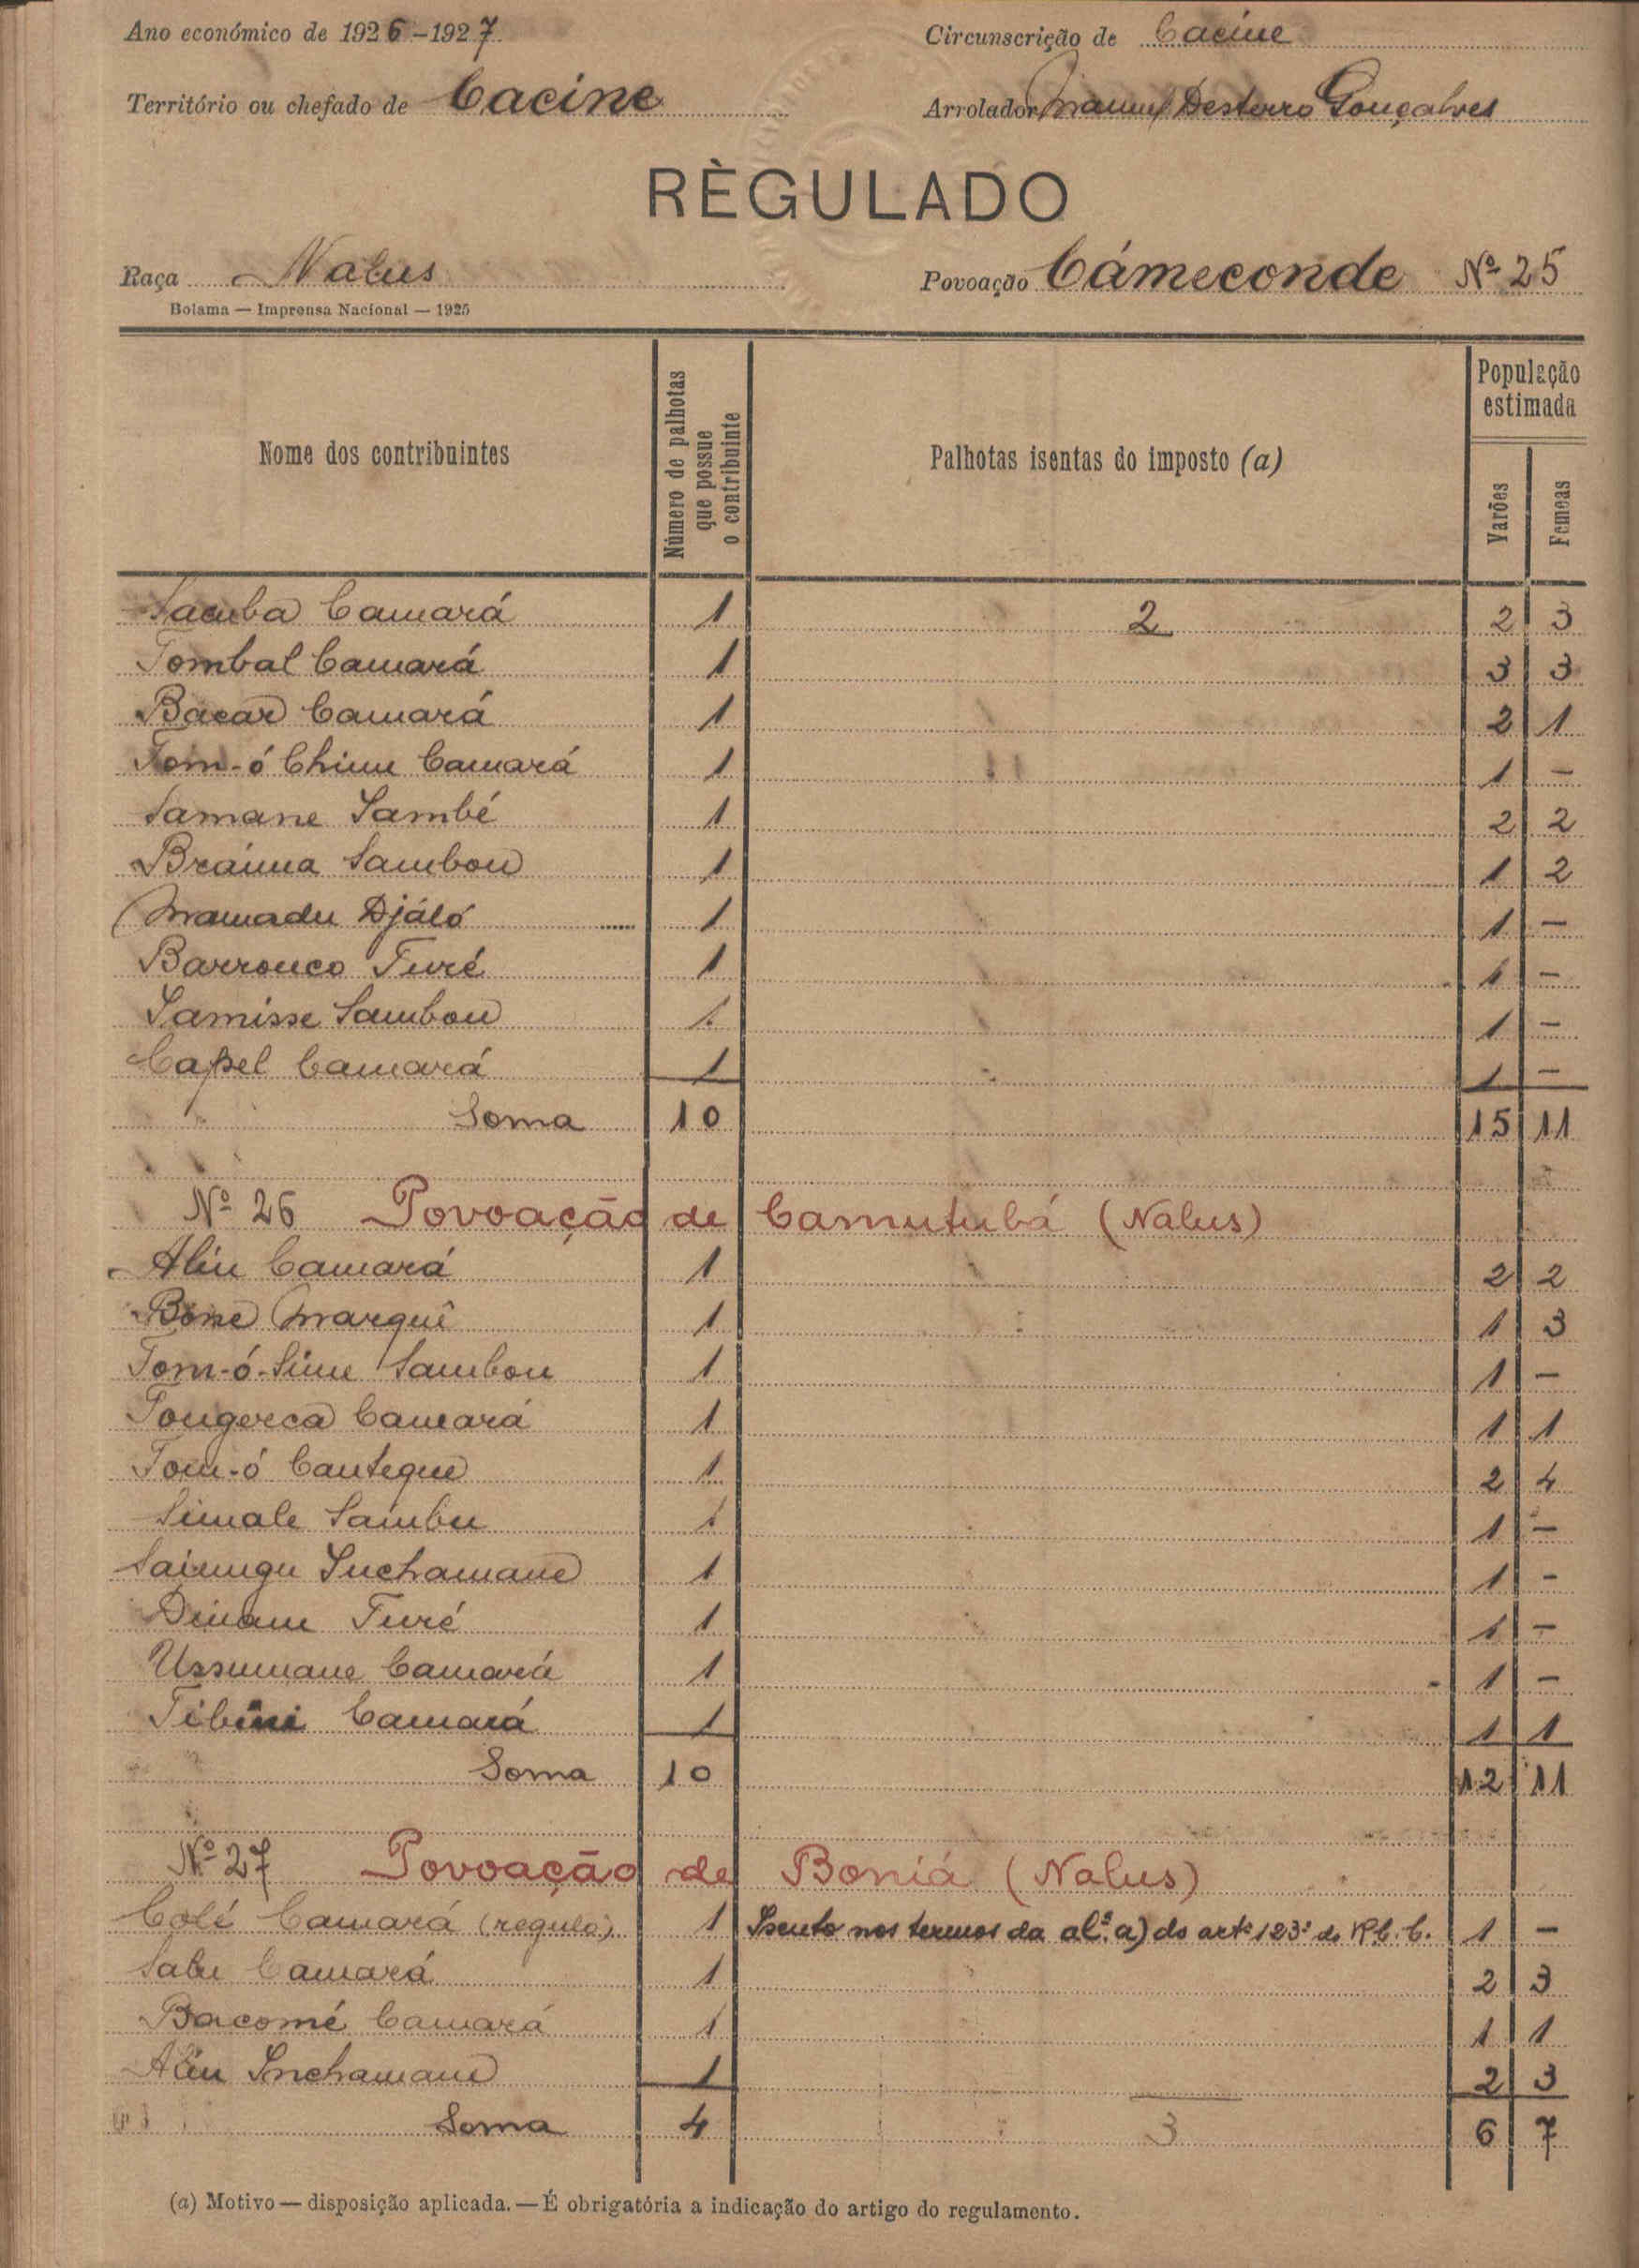 Ano económico de 1926-1927 Circunscrição de Cacine
Território ou chefado de Cacine Arrolador Manuel Desterro Gonçalves
RÈGULADO
Raça Nalus Povoação Cámeconde Nº 25
Bolama — Imprensa Nacional — 1925
Nome dos contribuintes Número de palhotas que possue o contribuinte Palhotas isentas do imposto (a) População estimada
Varões Femeas
Sacuba Camará 1 2 2 3
Tombal Camará 1 3 3
Bacar Camará 1 2 1
Tom-ó Chime Camará 1 1 -
Samane Sambé 1 2 2
Braima Sambou 1 1 2
Mamadu Djáló 1 1 -
Barrouco Turé 1 1 -
Samisse Sambou 1 1 -
Capel Camará 1 1 -
Soma 10 15 11
Nº 26 Povoação de Camutubá (Nalus)
Aliu Camará 1 2 2
Bone Marquê 1 1 3
Tom-ó-Sime Sambou 1 1 -
Tougerca Camará 1 1 1
Tom-ó Cauteque 1 2 4
Simale Sambu 1 1 -
Suchamane 1 1 -
Turé 1 1 -
Ussumane Camará 1 1 -
Tibini Camará 1 1 1
Soma 10 12 11
Nº 27 Povoação de Boniá (Nalus)
Colé Camará (regulo) 1 Isento nos termos da alª. a) do artº 123º do R.C.C. 1 -
Salu Camará 1 2 3
Bacomé Camará 1 1 1
Aliu Inchamane 1 2 3
Soma 4 3 6 7
(a) Motivo — disposição aplicada. — É obrigatória a indicação do artigo do regulamento.